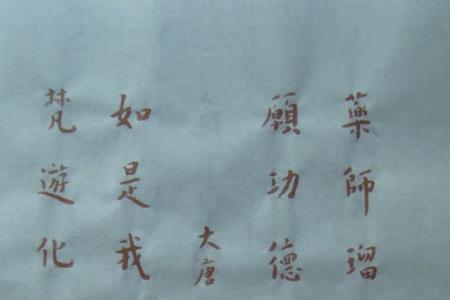 藥師瑠
願功德
大唐
如是我
梵遊化